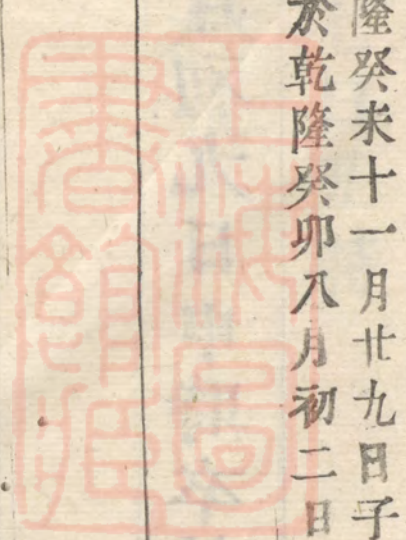 隆癸未十一月廿九日子
於乾隆癸卯八月初二日
上海圖
書館藏